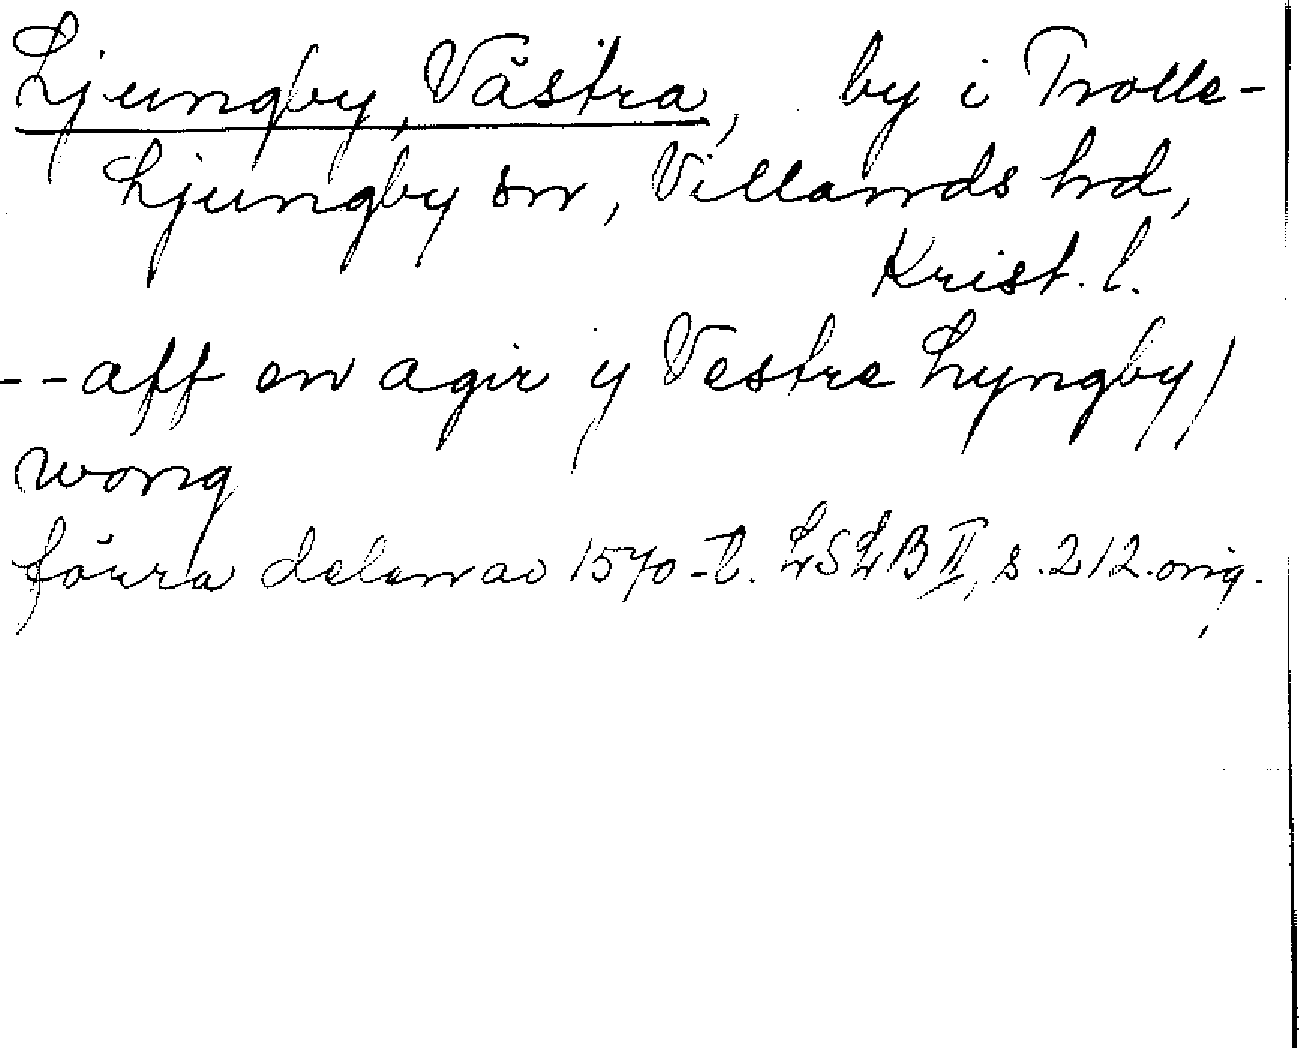 Ljungby, Västra, by i Trolle-
Ljungby sn, Villands hd,
Krist. l.
-- aff en agir y Vestre Lyngby /
wong
förra delen av 1570-t. LSLB II, s. 212. orig.